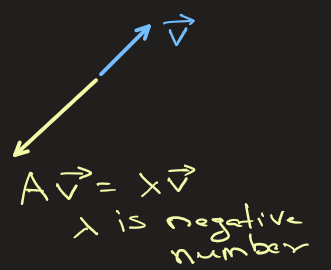 v⃗
Av⃗ = λv⃗
λ is negative
number